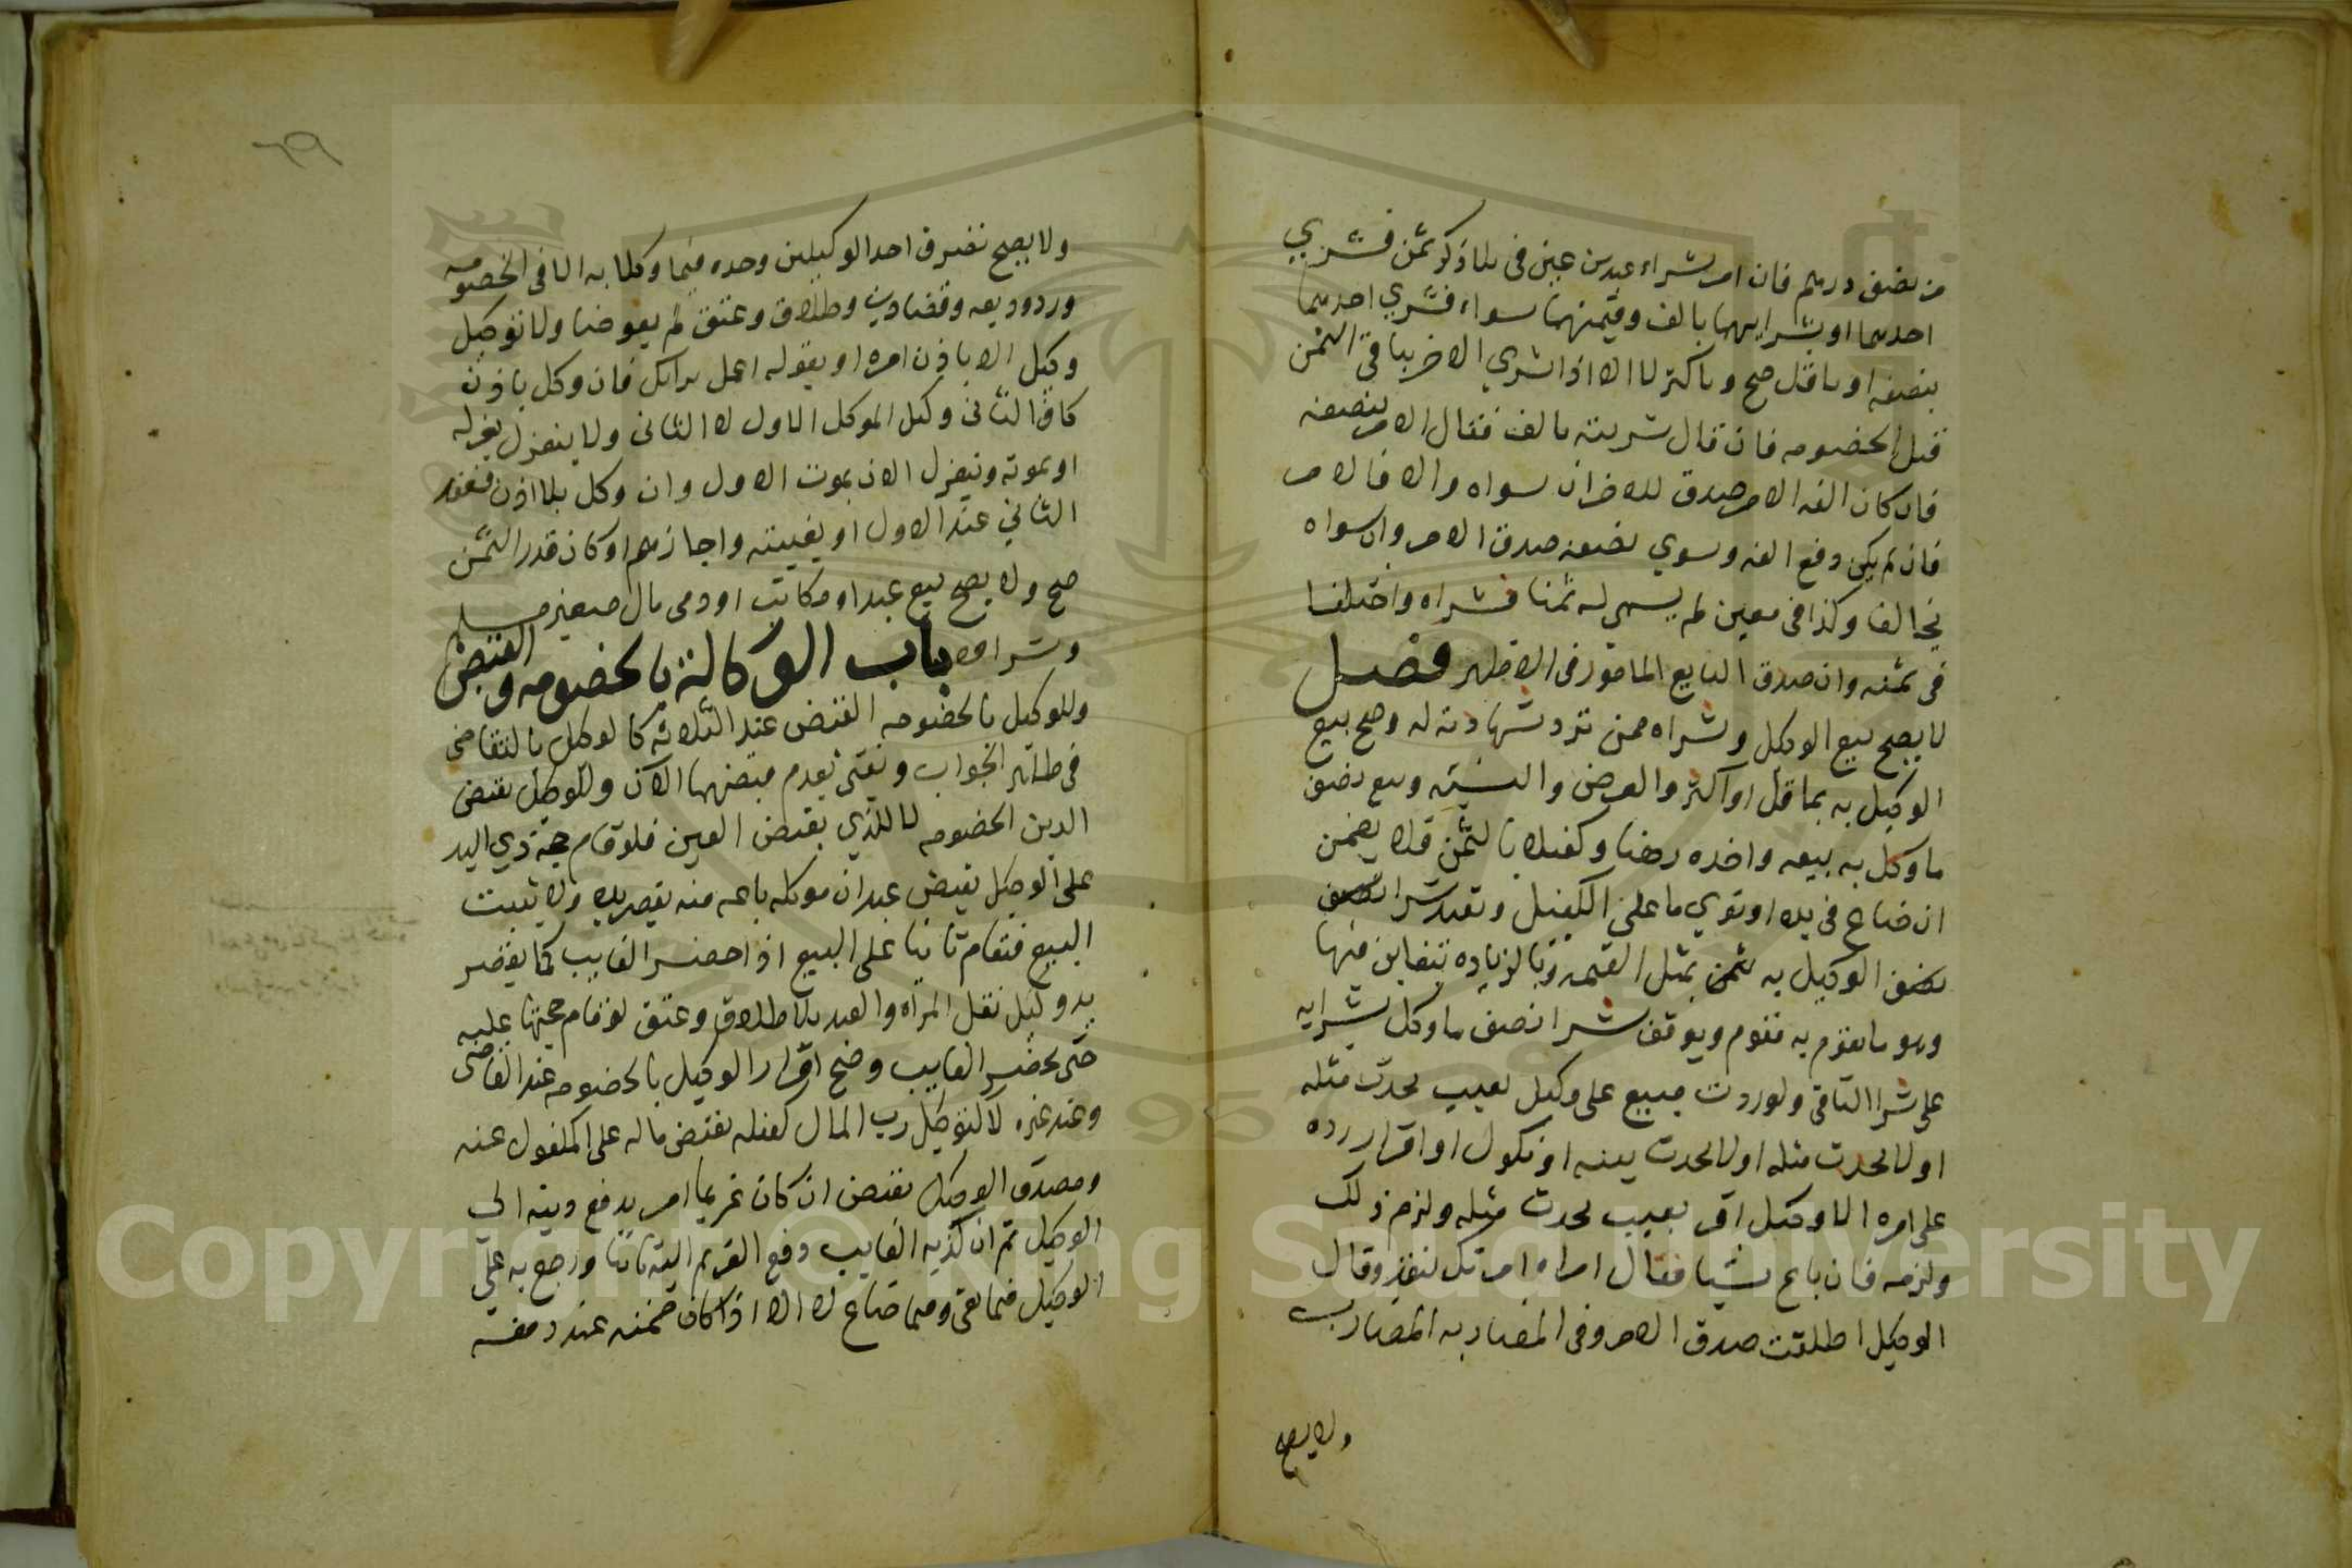 من نصف درهم فان امر بشراء عبدين عينين بلا ذكر ثمن فشري
احدهما او بشرايهما بالف وقيمتهما سواء فشري احدهما
بنصفه او باقل صح وباكثر لا الا اذا شري الاخر بباقي الثمن
قبل الخصومه فان قال شريته بالف فقال الامر بنصفه
فان كان الفه الامر صدق للاخر ان سواه والا فالامر
فان لم يكن دفع الفه وسوي نصفه صدق الامر وان سواه
تحالفا وكذا في معين لم يسمي له ثمنا فشراه واختلفا
في ثمنه وان صدق البايع المامور في الاظهر فصل
لا يصح بيع الوكيل وشراه ممن ترد شهادته له وصح بيع
الوكيل به بما قل او اكثر والعرض والنسيئه وبيع نصف
ما وكل به ببيعه واخذه رهنا وكفيلا بالثمن فلا يضمن
ان ضاع في يده او توي ما على الكفيل وتقيد شرا
الوكيل به بمثل القيمه وبالزياده يتغابن فيها
وهو ما يقوم به مقوم ويوقف شرا نصف ما وكل بشرايه
على شرا الباقي ولو ردت مبيع على وكيل بعيب يحدث مثله
او لا يحدث مثله او لا يحدث ببينه او نكول او اقرار رده
على امره الا وكيل اقر بعيب يحدث مثله ولزم ذلك
ولزمه فان باع نسيا فقال امراه امرتك بنقد وقال
الوكيل اطلقت صدق الامر وفي المضاربه المضارب
ولا يصح
٦٩
ولا يصح تصرف احد الوكيلين وحده فيما وكلا به الا في الخصومه
ورد وديعه وقضا دين وطلاق وعتق لم يعوضا ولا توكيل
وكيل الا باذن امره او بقوله اعمل برايك فان وكل باذن
كان الثاني وكيل الموكل الاول لا الثاني ولا ينعزل بعزله
او بموته وينعزل الان بموت الاول وان وكل بلا اذن فعقد
الثاني عند الاول او بغيبته واجازهم او كان قدر الثمن
صح ولا يصح بيع عبد او مكاتب او ذمي مال صغير مسلم
وشراوه باب الوكالة بالخصومه والقبض
وللوكيل بالخصومه القبض عند الثلاثه كالوكيل بالتقاضي
في ظاهر الجواب ويفتى بعدم قبضهما الان وللوكيل بقبض
الدين الخصومه لا للذي بقبض العين فلو قام حجة ذي اليد
على الوكيل بقبض عبد ان موكله باعه منه يقصر يده ولا يثبت
البيع فتقام ثانيا على البيع اذا احضر الغايب كما يقصر
يد وكيل نقل المراه والعبد بلا طلاق وعتق لو قام حجتها عليه
حتى يحضر الغايب وصح اقرار الوكيل بالخصومه عند القاضي
وعند غيره لا لتوكيل رب المال كفيله بقبض ماله على المكفول عنه
ومصدق الوكيل بقبض ان كان غريما امر بدفع دينه الى
الوكيل ثم ان كذبه الغايب دفع الغريم اليه ثانيا ورجع به على
الوكيل فيما بقي وفيما ضاع لا الا اذا كان ضمنه عند دفعه
Copyright © King Saud University